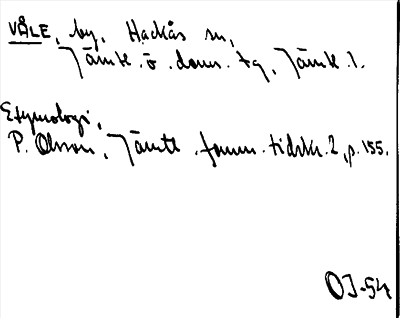 VÅLE, by, Hackås sn,
Jämt. ö. doms. tg, Jämt. l.
Etymologi,
P. Olsson, Jämtl. fornm. tidskr. 2, p. 155.
OJ-54